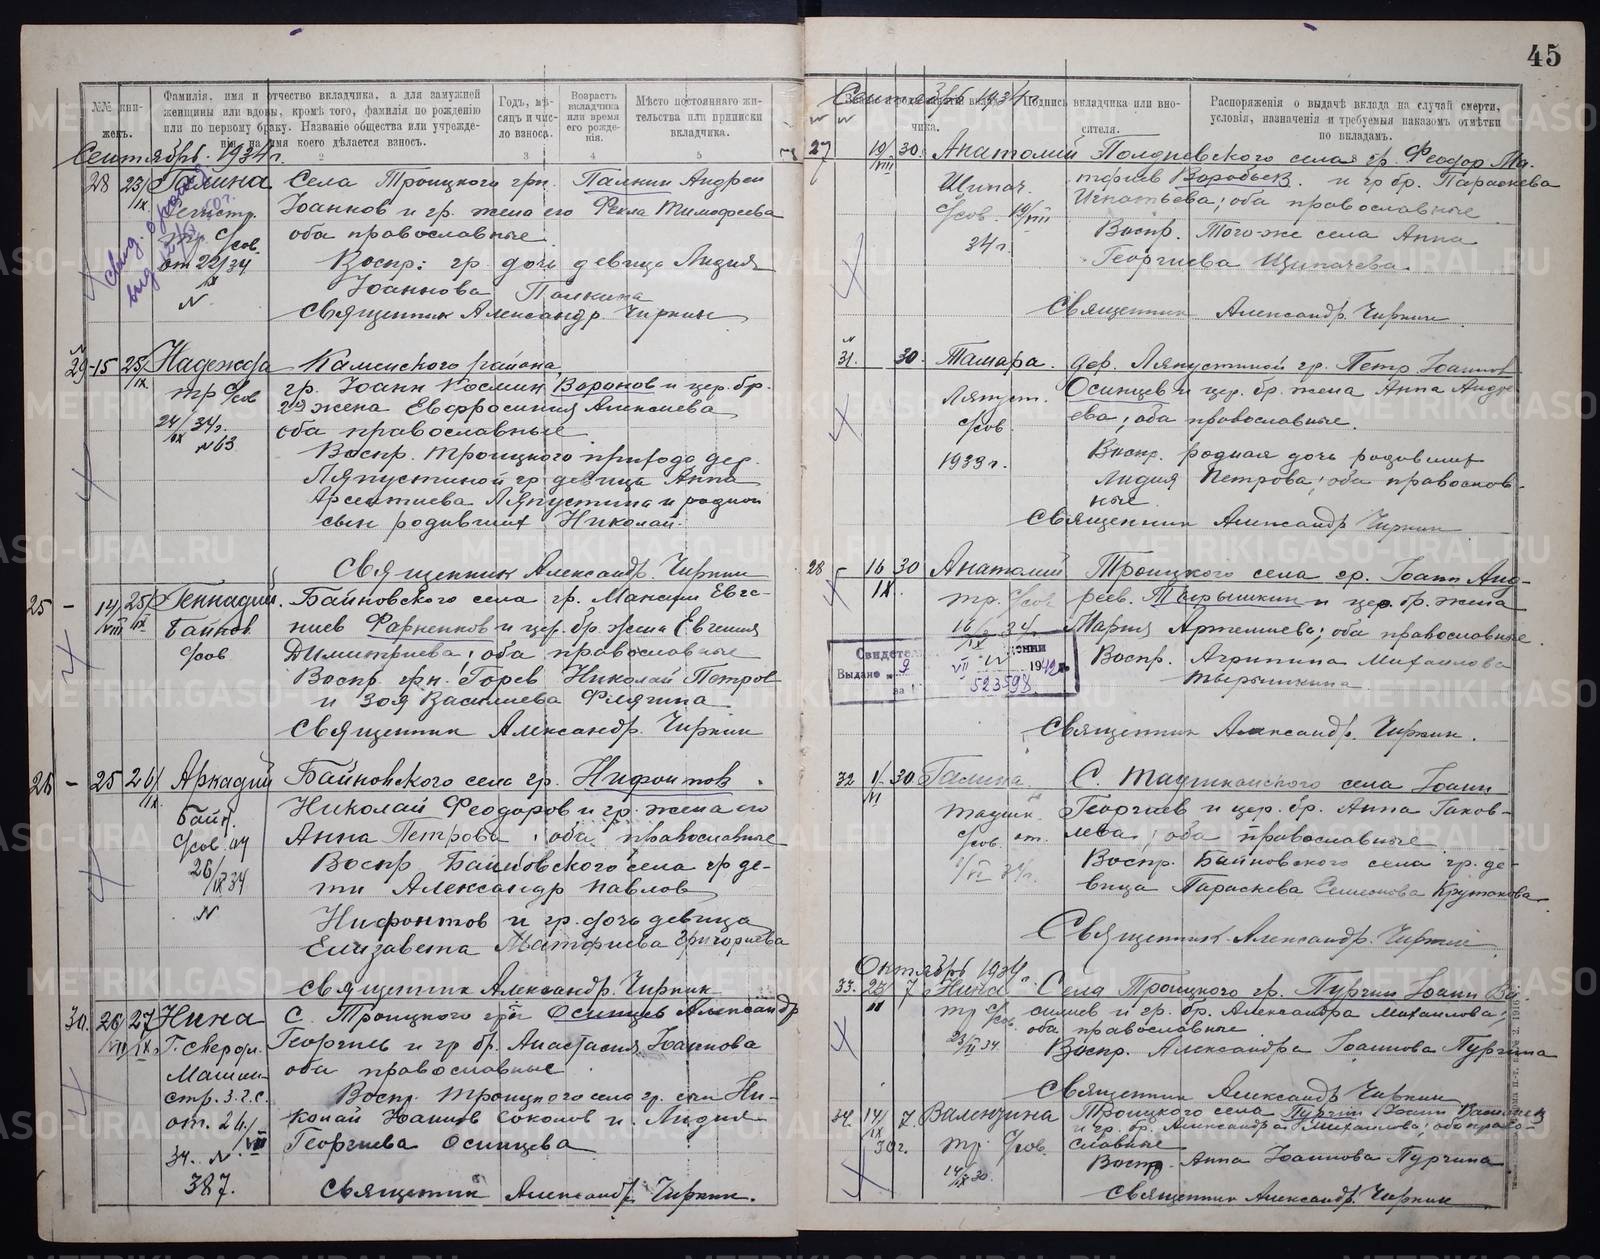 45
№№ кни-
жекъ.
Фамилія, имя и отчество вкладчика, а для замужней
женщины или вдовы, кромѣ того, фамилія по рожденію
или по первому браку. Названіе общества или учрежде-
нія на имя коего дѣлается взносъ.
Годъ, мѣ-
сяцъ и чис-
ло взноса.
Возрастъ
вкладчика
или время
его рожде-
нія.
Мѣсто постояннаго жи-
тельства или приписки
вкладчика.
2 3 4 5
Сентябрь. 1934 г.
28 23/IX Галина Села Троицкого грн. Палкин Андреи
Регистр. Иоаннов и гр. жена его Фекла Тимофеева
тр. с/сов. оба православные
от 22/34 Воспр: гр. дочь девица Лидия
IX
№ Иоаннова Палкина
Священник Александр. Чиркин
29 15 25/IX Надежда Каменского района
тр с/сов гр. Иоанн Космин Воронов и цер. бр.
жена Евфросиния Алексиева
24/IX 34 г. оба православные
№63 Воспр. Троицкого прихода дер.
Ляпустиной гр девица Анна
Арсентиева Ляпустина и родной
сын родивших Николай.
Священник Александр. Чиркин
25 – 14/VIII 25/IX Геннадий. Байновского села гр. Максим Евге-
Байнов. ниев и цер. бр. жена Евгения
с/сов Димитриева; оба православные
Воспр. грн. Горев Николай Петров
и Зоя Василиева
Священник Александр. Чиркин
26 – 25 26/IX Аркадий Байновского села гр. Нифонтов.
Байн. Николай Феодоров и гр. жена его
с/сов. от Анна Петрова; оба православные
26/IX 34 Воспр Байновского села гр де-
ти Александр Павлов
№ Нифонтов и гр. дочь девица
Елизавета Матфиева Григориева
Священник Александр. Чиркин
30. 26/VIII 27/IX Нина С. Троицкого грн Осинцев Александр
Г. Свердл. Георгиев и гр бр. Анастасия Иоаннова
Машин- оба православные
стр. З.Г.С. Воспр. Троицкого села гр. сын Ни-
от. 26/VIII колай Иоаннов Соколов и Лидия
34. № Георгиева Осинцева
387. Священник Александр. Чиркин.
Сентябрь 1934 г.
чика.
Подпись вкладчика или вно-
сителя.
Распоряженія о выдачѣ вклада на случай смерти,
условія, назначенія и требуемыя наказомъ отмѣтки
по вкладамъ.
27 19/VIII 30. Анатолий Полдневского села гр. Феодор Ма-
Щипач. Воробьев. и гр бр. Параскева
с/сов. 19/VIII Игнатьева; оба православные
34 г. Воспр. Того-же села Анна
Георгиева Щипачева.
Священник Александр. Чиркин.
31. 30. Тамара. дер. Ляпустиной гр. Петр Иоаннов
Ляпуст. Осинцев и цер. бр. жена Анна Андре
с/сов. ева; оба православные.
1933 г. Воспр. родная дочь родивших
Лидия Петрова; оба православ-
ные.
Священник Александр. Чиркин
28 16/IX 30 Анатолий Троицкого села гр. Иоанн Анд-
тр. с/сов реев. Тырышкин и цер. бр. жена
16/IX 34 г. Мария Артемиева; оба православные.
Воспр. Агрипина Михаилова
Тырышкина
Свидетел
Выдано 9 VII 1942 г.
за № 523598
Священник Александр. Чиркин.
32 30 Галина. С. Таушканского села Иоанн
Таушк. Георгиев и цер. бр. Анна Иаков-
с/сов. от. лева; оба православные
34 г. Воспр. Байновского села гр. де-
вица Параскева Симеонова Крутакова
Священник Александр. Чиркин
Октябрь 1934 г.
33. 23 7 Нина Села Троицкого гр. Пургин Иоанн Ва-
тр с/сов. силиев и гр. бр. Александра Михаилова;
оба православные
Воспр. Александра Иоаннова Пургина
Священник Александр Чиркин
34. 14/IX 7. Валентина Троицкого села Пургин Иоанн Василиев
30 г. тр. с/сов. и гр. бр. Александра Михаилова; оба право-
славные
14/IX 30. Воспр. Анна Иоаннова Пургина
Священник Александр. Чиркин
METRIKI.GASO-URAL.RU